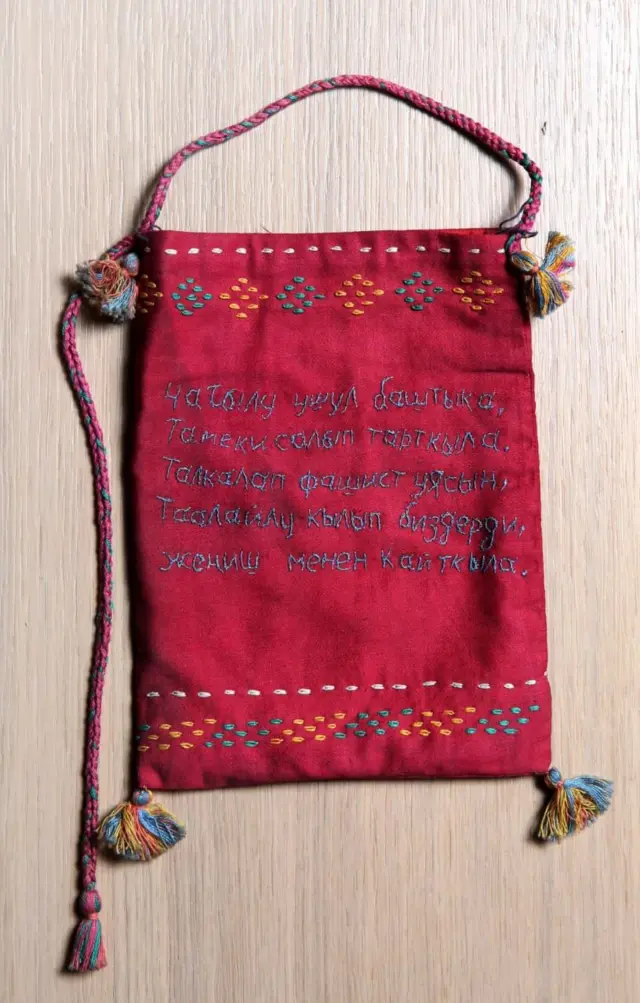 Чачылу ушул баштыка,
Тамеки салып тарткыла.
Талкалап фашист уясын,
Таалайлу кылып биздерди,
жеңиш менен кайткыла.